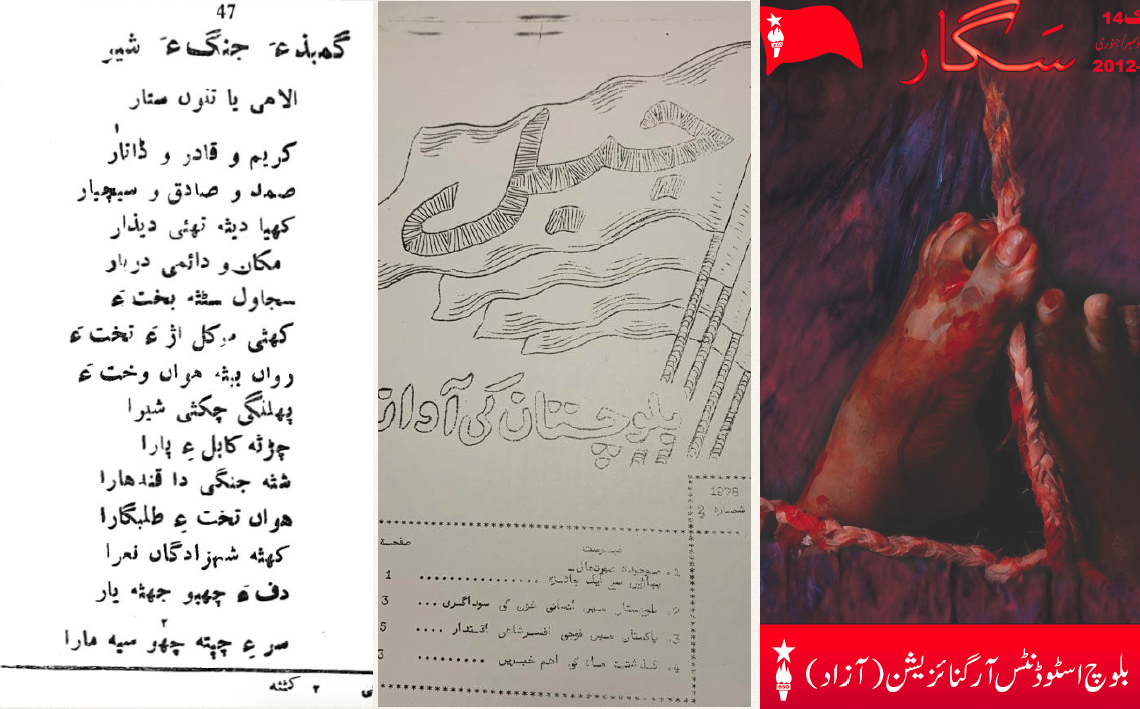 47
گمبذءَ جنگءَ شیر
الاهی یا تئوں ستار
کریم و قادر و ڈاتار
صمد و صادق و سیچیار
کهیا دیثه تهئی دیذار
مکان و دائمی دربار
سجاول سٹثه بختءَ
کهئی مرکل اژءَ تختءَ
رواں بیثه هواں وختءَ
پهلنگی چکثی شیرا
چڑثه کابلءِ پارا
شثه جنگی دا قندهارا
هواں تختءِ طلبگارا
کهثه شهزادگاں نعرا
دفءَ چهیو جهثه یار
سرءِ چپثه چهو سیه مارا
۲ کنثه
جبل
بلوچستان کی آواز
1978
شماره 2
فہرست
صفحہ
1۔ موجودہ صورتحال۔
پہاڑوں سے ایک جائزہ ................ 1
2۔ بلوچستان میں انسانی خون کی سوداگری ... 3
3۔ پاکستان میں فوجی افسرشاہی اقتدار .... 5
4۔ گذشتہ ماہ کی اہم خبریں .........
سَگار
14
جنوری
2012-
BSO
بلوچ اسٹوڈنٹس آرگنائزیشن (آزاد)
BSO